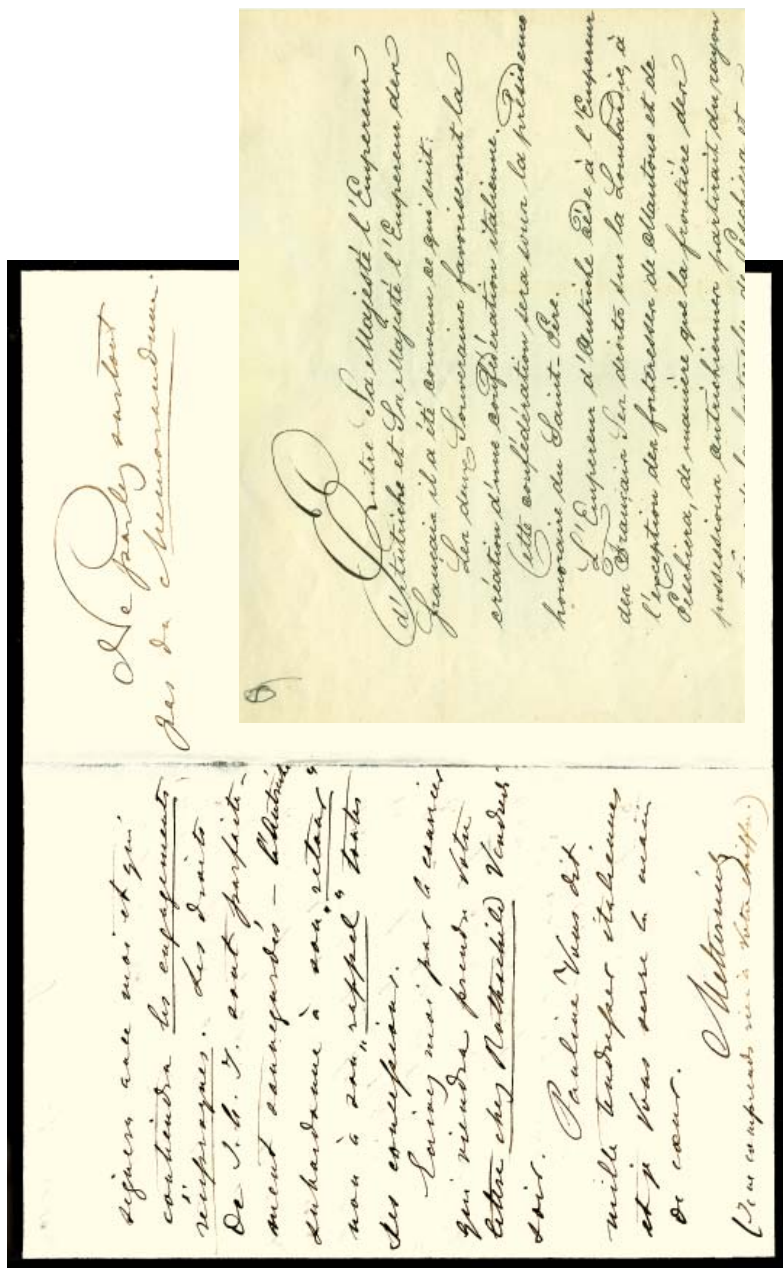 Entre Sa Majesté l'Empereur
d'Autriche et Sa Majesté l'Empereur des
Français il a été convenu ce qui suit:
Les deux Souverains favoriseront la
création d'une confédération italienne.
Cette confédération sera sous la présidence
honoraire du Saint-Père.
L'Empereur d'Autriche cède à l'Empereur
des Français Ses droits sur la Lombardie, à
l'exception des forteresses de Mantoue et de
Peschiera, de manière que la frontière des
possessions autrichiennes partirait du rayon
de la forteresse de Peschiera et
Ne parlez surtout
pas du Memorandum.
signera avec moi et qui
contiendra les engagements
réciproques. Les droits
De S. M. I. sont parfaite-
ment sauvegardés – l'Autriche
subordonne à son "retour"
non à son "rappel" toutes
ses concessions.
Ecrivez moi par le courrier
qui viendra prendre votre
lettre chez Rothschild Vendredi
soir.
Pauline Vous dit
mille tendresses italiennes
et je Vous serre la main
de cœur.
Metternich
(Je ne comprends rien à votre chiffre.)